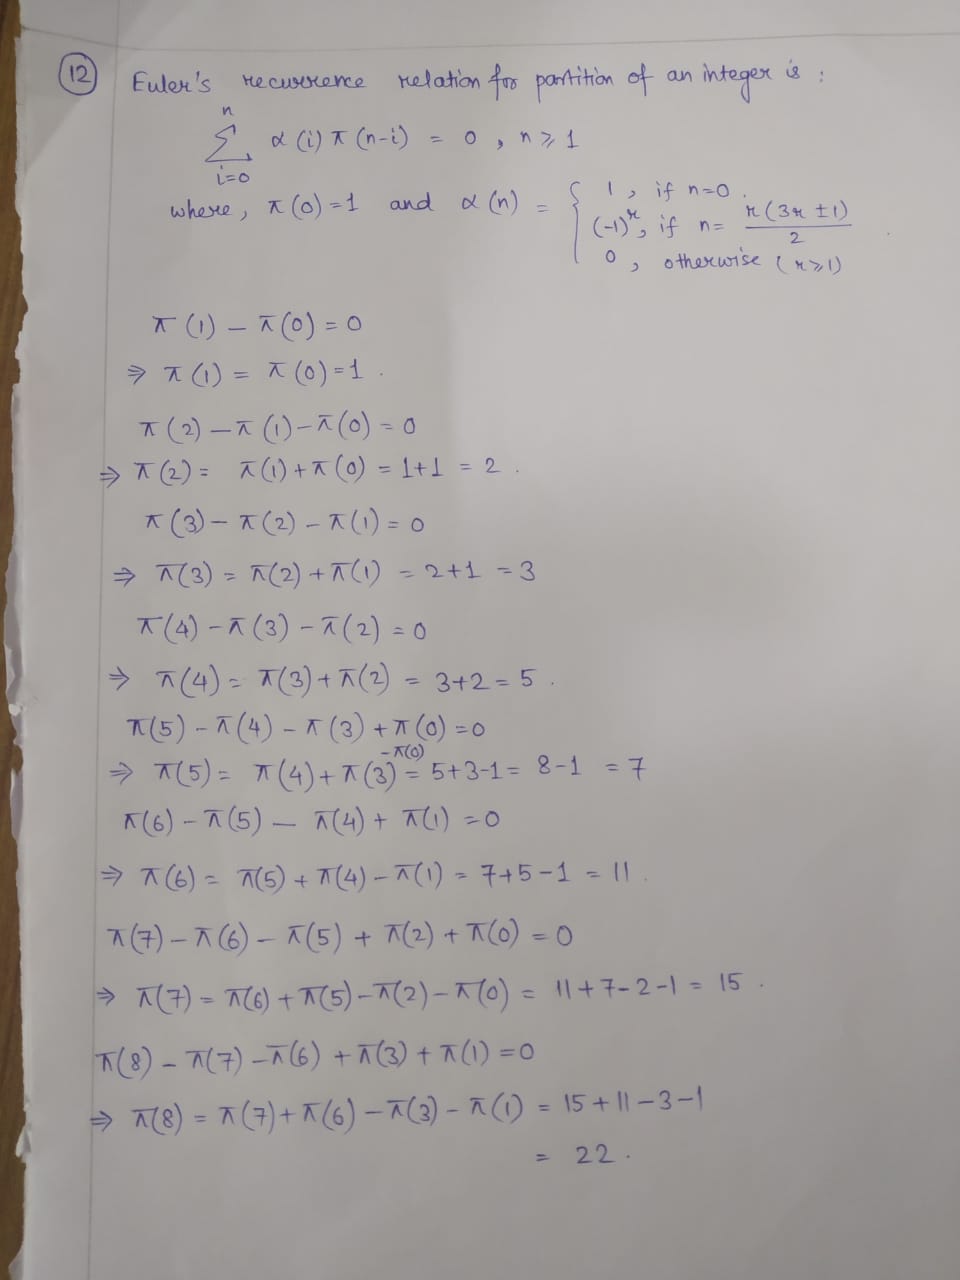 12 Euler's recurrence relation for partition of an integer is :
n
∑ α(i) π(n-i) = 0 , n ≥ 1
i=0
where, π(0)=1 and α(n) = { 1 , if n=0 .
(-1)^r, if n= r(3r ±1)/2
0 , otherwise (r≥1)
π(1) - π(0) = 0
⇒ π(1) = π(0) = 1 .
π(2) - π(1) - π(0) = 0
⇒ π(2) = π(1) + π(0) = 1+1 = 2 .
π(3) - π(2) - π(1) = 0
⇒ π(3) = π(2) + π(1) = 2+1 = 3
π(4) - π(3) - π(2) = 0
⇒ π(4) = π(3) + π(2) = 3+2 = 5 .
π(5) - π(4) - π(3) + π(0) = 0
⇒ π(5) = π(4) + π(3) -π(0) = 5+3-1 = 8-1 = 7
π(6) - π(5) - π(4) + π(1) = 0
⇒ π(6) = π(5) + π(4) - π(1) = 7+5-1 = 11 .
π(7) - π(6) - π(5) + π(2) + π(0) = 0
⇒ π(7) = π(6) + π(5) - π(2) - π(0) = 11+7-2-1 = 15 .
π(8) - π(7) - π(6) + π(3) + π(1) = 0
⇒ π(8) = π(7) + π(6) - π(3) - π(1) = 15+11-3-1
= 22 .